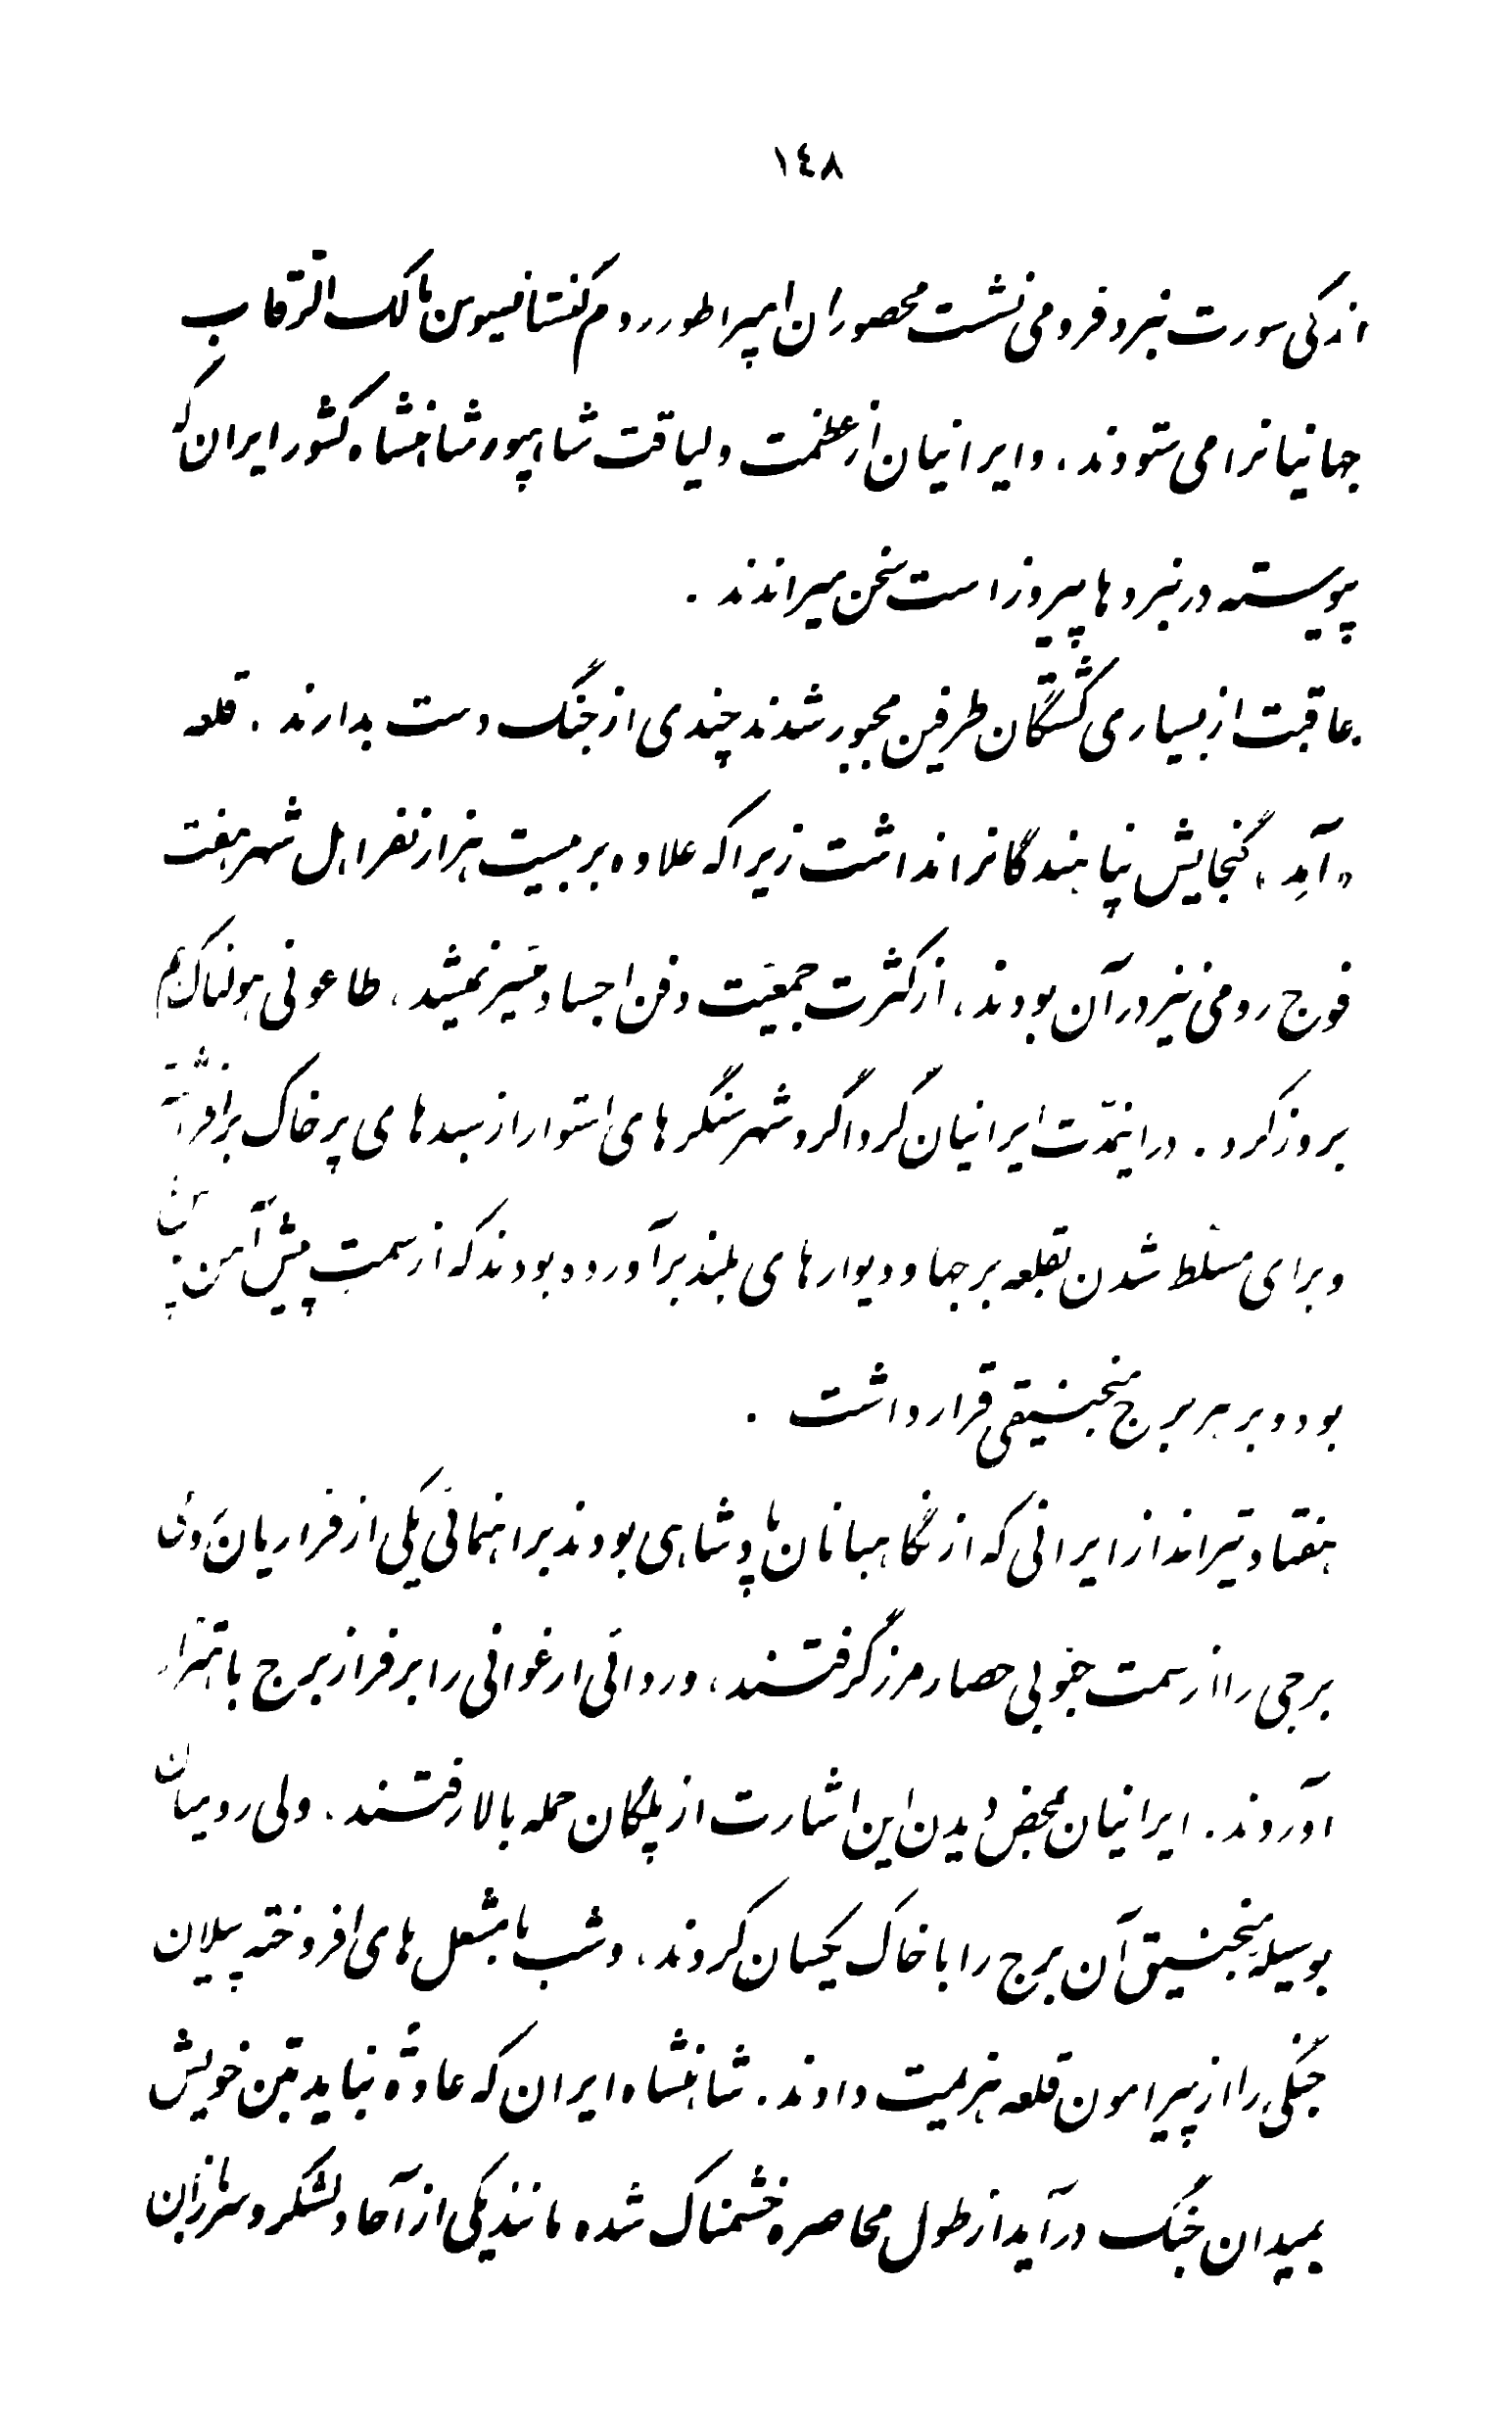 ١٤٨
اندکی سورت نبرد فرو می نشست محصوران امپراطور روم کنستانسیوس مالک الرّقاب
جهانیانرا می ستودند. و ایرانیان از عظمت و لیاقت شاهپور شاهنشاه کشور ایران که
پیوسته در نبردها پیروز است سخن میراندند .
عاقبت از بسیاری کشتگان طرفین مجبور شدند چندی از جنگ دست بدارند . قلعه
«آمِد» گنجایش پناهندگانرا نداشت زیرا که علاوه بر بیست هزار نفر اهل شهر هفت
فوج رومی نیز در آن بودند، از کثرت جمعیّت دفن اجساد میّسر نمیشد، طاعونی هولناک هم
بروز کرد . در اینمدّت ایرانیان گرداگرد شهر سنگرهای استوار از سبدهای پر خاک برافراشته
و برای مسلّط شدن بقلعه برجها و دیوارهای بلند برآورده بودند که از سمت پیش آهن پوش
بود و بر هر برج منجنیقی قرار داشت .
هفتاد تیرانداز ایرانی که از نگاهبانان پادشاهی بودند براهنمائی یکی از فراریان رومی
برجی را از سمت جنوبی حصار مرز گرفتند، و ردائی ارغوانی را بر فراز برج باهتزاز
آوردند . ایرانیان بمحض دیدن این اشارت از پلکان حمله بالا رفتند . ولی رومیان
بوسیله منجنیق آن برج را با خاک یکسان کردند، و شب با مشعل های افروخته پیلان
جنگی را از پیرامون قلعه هزیمت دادند . شاهنشاه ایران که عادةً نباید بتن خویش
بمیدان جنگ درآید از طول محاصره خشمناک شده مانند یکی از آحاد لشکر و سربازان